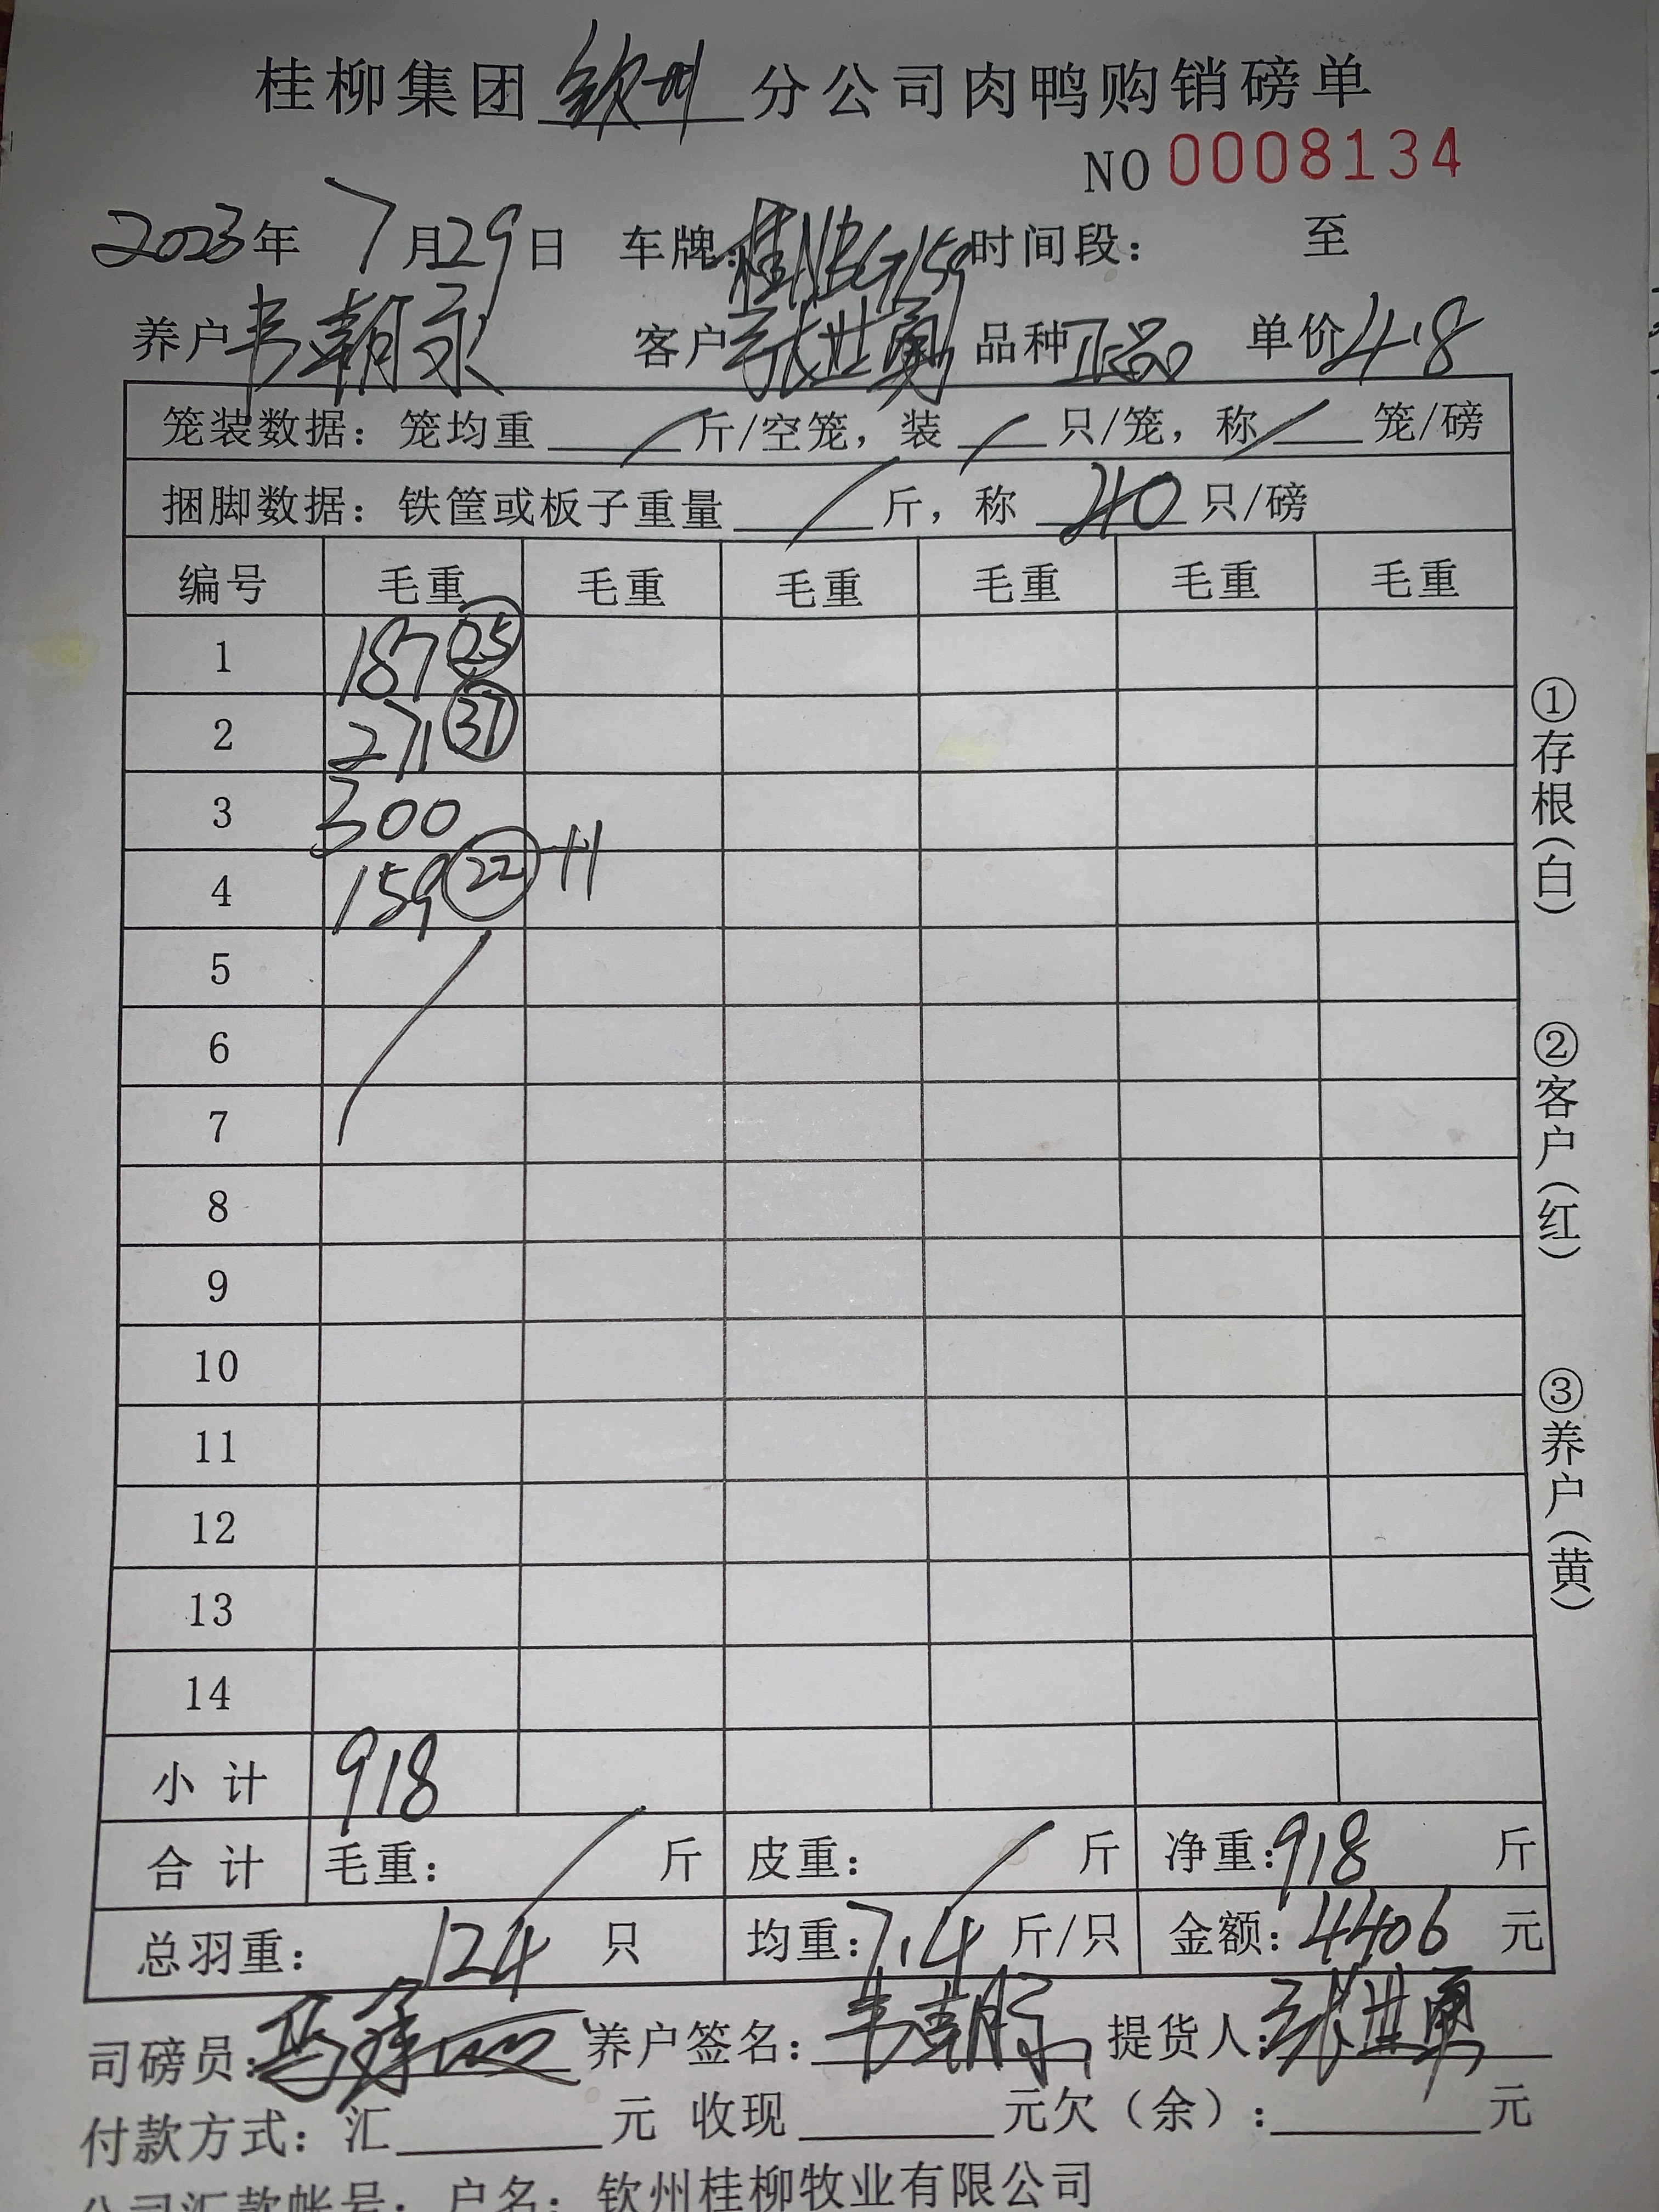 桂柳集团 钦州 分公司肉鸭购销磅单
NO 0008134
2023年 7月29日 车牌:桂NBG159 时间段: 至
养户 韦朝永 客户 张世勇 品种 正品 单价 4.8
笼装数据: 笼均重 / 斤/空笼, 装 / 只/笼, 称 / 笼/磅
捆脚数据: 铁筐或板子重量 / 斤, 称 40 只/磅
编号 毛重 毛重 毛重 毛重 毛重 毛重
1 187 25
2 271 37
3 300
4 159 22 +1
5
6
7
8
9
10
11
12
13
14
小计 918
合计 毛重: / 斤 皮重: / 斤 净重:918 斤
总羽重: 124 只 均重:7.4 斤/只 金额:4406 元
司磅员: 养户签名: 韦朝永 提货人:张世勇
付款方式: 汇 元 收现 元欠(余): 元
公司汇款帐号: 户名: 钦州桂柳牧业有限公司
①存根(白)
②客户(红)
③养户(黄)